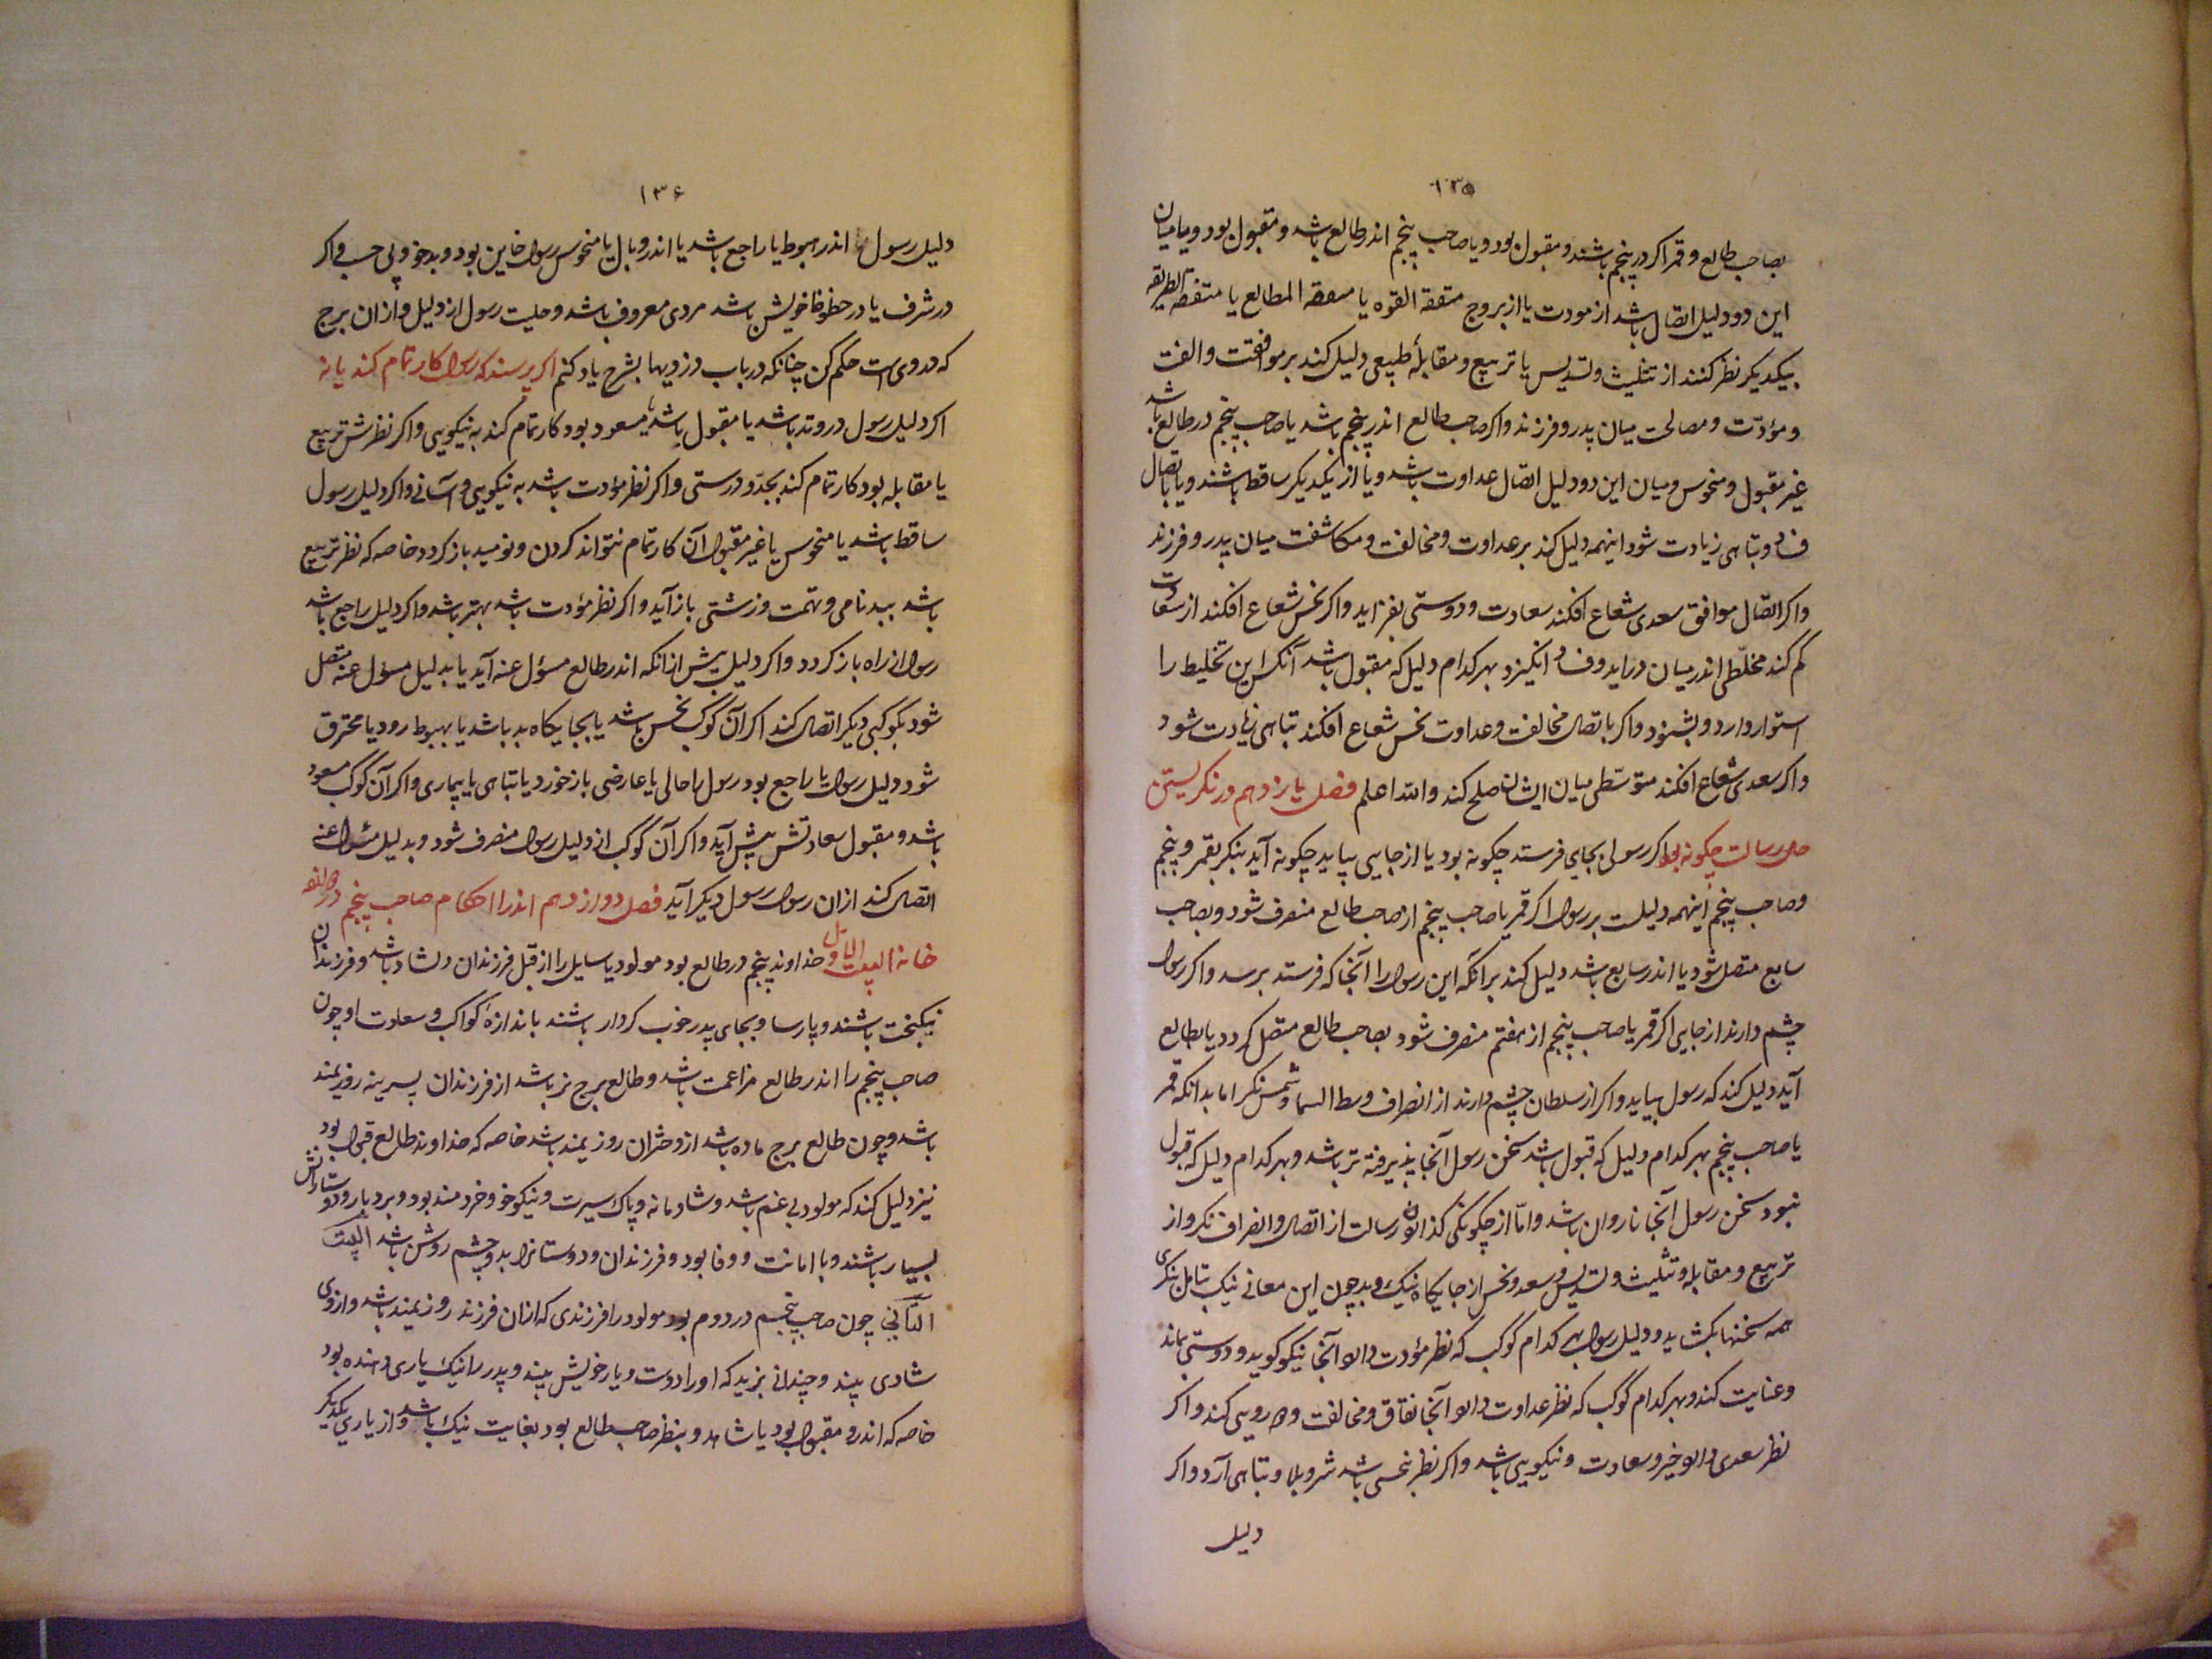 ۱۳۵
بصاحب طالع و قمر اکر در پنجم باشند و مقبول بود و یا صاحب پنجم اندر طالع باشد و مقبول بود و یا میان
این دو دلیل اتصال باشد از مودت یا از بروج متفقة القوه یا متفقه المطالع یا متفقه الطریقه
بیکدیکر نظر کنند از تثلیث و تسدیس یا تربیع و مقابلهٔ طبیعی دلیل کند بر موافقت و الفت
و مؤدّت و مصالحت میان پدر و فرزند و اکر صاحب طالع اندر پنجم باشد یا صاحب پنجم در طالع باشد
غیر مقبول و منحوس و میان این دو دلیل اتصال عداوت باشد و یا از یکدیکر ساقط باشند و یا باتصال
فساد و تباهی زیادت شود اینهمه دلیل کند بر عداوت و مخالفت و مکاشفت میان پدر و فرزند
واکر اتصال موافق سعدی شعاع افکند سعادت و دوستی بفزاید واکر نحس شعاع افکند از سعادت
کم کند مخلّطی اندر میان دراید و فساد انکیزد بهر کدام دلیل که مقبول باشد آنکس این تخلیط را
استوار دارد و بشنود واکر باتصال مخالفت و عداوت نحس شعاع افکند تباهی زیادت شود
واکر سعدی شعاع افکند متوسّطی میان ایشان صلح کند والله اعلم فصل یازدهم در نکریستن
حال رسالت چکونه بود اکر رسولی بجای فرستد چکونه بود یا از جایی بیاید چکونه آید بنکر بقمر و پنجم
و صاحب پنجم اینهمه دلیلست بر رسول اکر قمر یا صاحب پنجم از صاحب طالع منصرف شود و بصاحب
سابع متصل شود یا اندر سابع باشد دلیل کند برانکه این رسول را آنجا که فرستد برسد واکر رسول
چشم دارند از جایی اکر قمر یا صاحب پنجم از هفتم منصرف شود بصاحب طالع متصل کردد یا بطالع
آید دلیل کند که رسول بیاید واکر از سلطان چشم دارند از انصراف وسط السما و شمس نکر اما بدانکه قمر
یا صاحب پنجم بهر کدام دلیل که قبول باشد سخن رسول آنجا پذیرفته تر باشد و بهر کدام دلیل که قبول
نبود سخن رسول آنجا ناروان باشد و امّا از چکونکی کذاردن رسالت از اتصال و انصراف نکر و از
تربیع و مقابله و تثلیث و تسدیس و سعد و نحس از جایکاه نیک و بد چون این معانی نیک تامل بنکری
همه سخنها بکشاید و دلیل رسول بهر کدام کوکب که نظر مؤدت دارد آنجا نیکو کوید و دوستی نماید
و عنایت کند و بهر کدام کوکب که نظر عداوت دارد آنجا نفاق و مخالفت و دورویی کند واکر
نظر سعدی دارد خیر و سعادت و نیکویی باشد واکر نظر نحسی باشد شر و بلا و تباهی آرد واکر
دلیل
۱۳۶
دلیل رسول اندر هبوط یا راجع باشد یا اندر وبال یا منحوس رسول خاین بود و بدخو و بی حسب واکر
در شرف یا در حظوظ خویش باشد مردی معروف باشد و حلیت رسول از دلیل و از ان برج
که در وی است حکم کن چنانکه در باب دزدیها بشرح یاد کنم اکر پرسند که رسول کار تمام کند یا نه
اکر دلیل رسول در وتد باشد یا مقبول باشد یا مسعود بود کار تمام کند به نیکویی واکر نظرش تربیع
یا مقابله بود کار تمام کند بجدّ و درستی واکر نظر مؤدت باشد به نیکویی و آسانی واکر دلیل رسول
ساقط باشد یا منحوس یا غیر مقبول آن کار تمام نتواند کردن و نومید باز کردد خاصه که نظر تربیع
باشد ببدنامی و تهمت و زشتی باز آید واکر نظر مؤدت باشد بهتر باشد واکر دلیل راجع باشد
رسول از راه باز کردد واکر دلیل پیش از انکه اندر طالع مسؤل عنه آید یا بدلیل مسؤل عنه متصل
شود بکوکبی دیکر اتصال کند اکر آن کوکب نحس باشد یا بجایکاه بد باشد یا بهبوط رود یا محترق
شود دلیل رسول یا راجع بود رسول را حالی یا عارضی باز خورد یا تباهی یا بیماری واکر آن کوکب مسعود
باشد و مقبول سعادتش پیش آید واکر آن کوکب از دلیل رسول منصرف شود و بدلیل مسؤل عنه
اتصال کند از ان رسول رسول دیکر آید فصل دوازدهم اندر احکام صاحب پنجم در دوازده
خانه البیت الاول خداوند پنجم در طالع بود مولود یا سایل را از قبل فرزندان دلشاد باشد و فرزندان
نیکبخت باشند و پارسا و بجای پدر خوب کردار باشند باندازهٔ کواکب و سعادت او چون
صاحب پنجم را اندر طالع مزاعمت باشد و طالع برج نر باشد از فرزندان پسرینه روزیمند
باشد و چون طالع برج ماده باشد از دختران روزیمند باشد خاصه که خداوند طالع قبول بود
نیز دلیل کند که مولود بی غم باشد و شادمانه و پاک سیرت و نیکو خو و خردمند بود و بردبار و دوستانش
بسیار باشند و با امانت و وفا بود و فرزندان و دوستانرا بدو چشم روشن باشد البیت
الثانی چون صاحب پنجم در دوم بود مولود را فرزندی که از ان فرزند روزیمند باشد و از وی
شادی بیند و چندانی بزید که او را دوست و یار خویش بیند و پدر را نیک یاری دهنده بود
خاصه که اندرو مقبول بود یا شاهد و بنظر صاحب طالع بود بغایت نیک باشد و از یاری یکدیکر